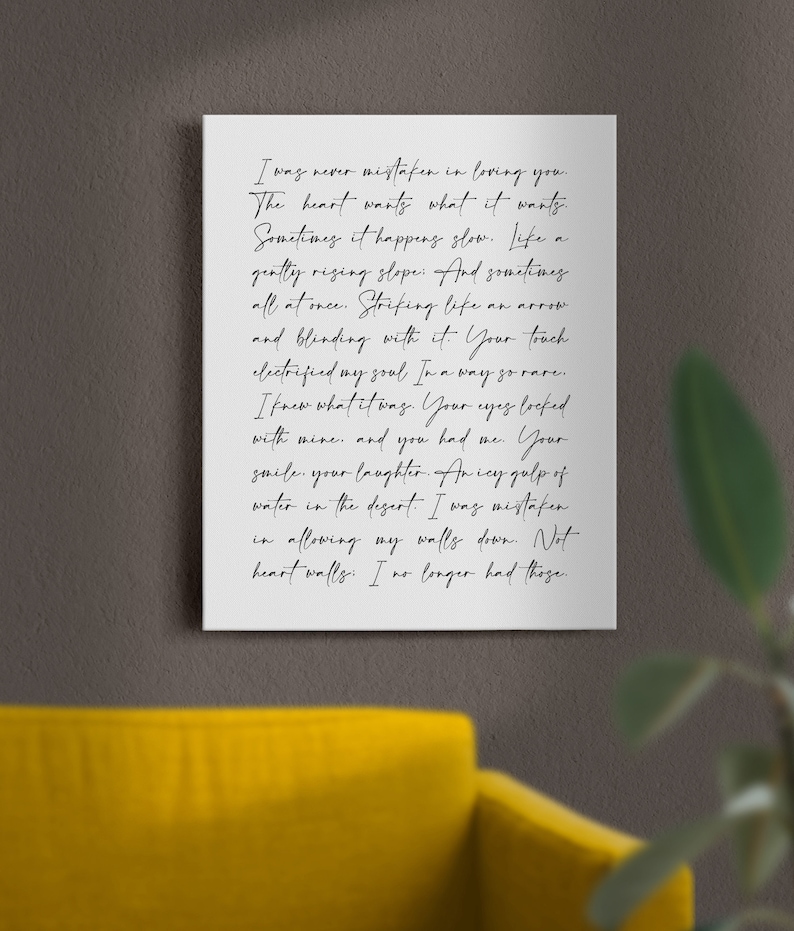 I was never mistaken in loving you.
The heart wants what it wants.
Sometimes it happens slow. Like a
gently rising slope; And sometimes
all at once. Striking like an arrow
and blinding with it. Your touch
electrified my soul In a way so rare,
I knew what it was. Your eyes locked
with mine, and you had me. Your
smile, your laughter. An icy gulp of
water in the desert. I was mistaken
in allowing my walls down. Not
heart walls; I no longer had those.